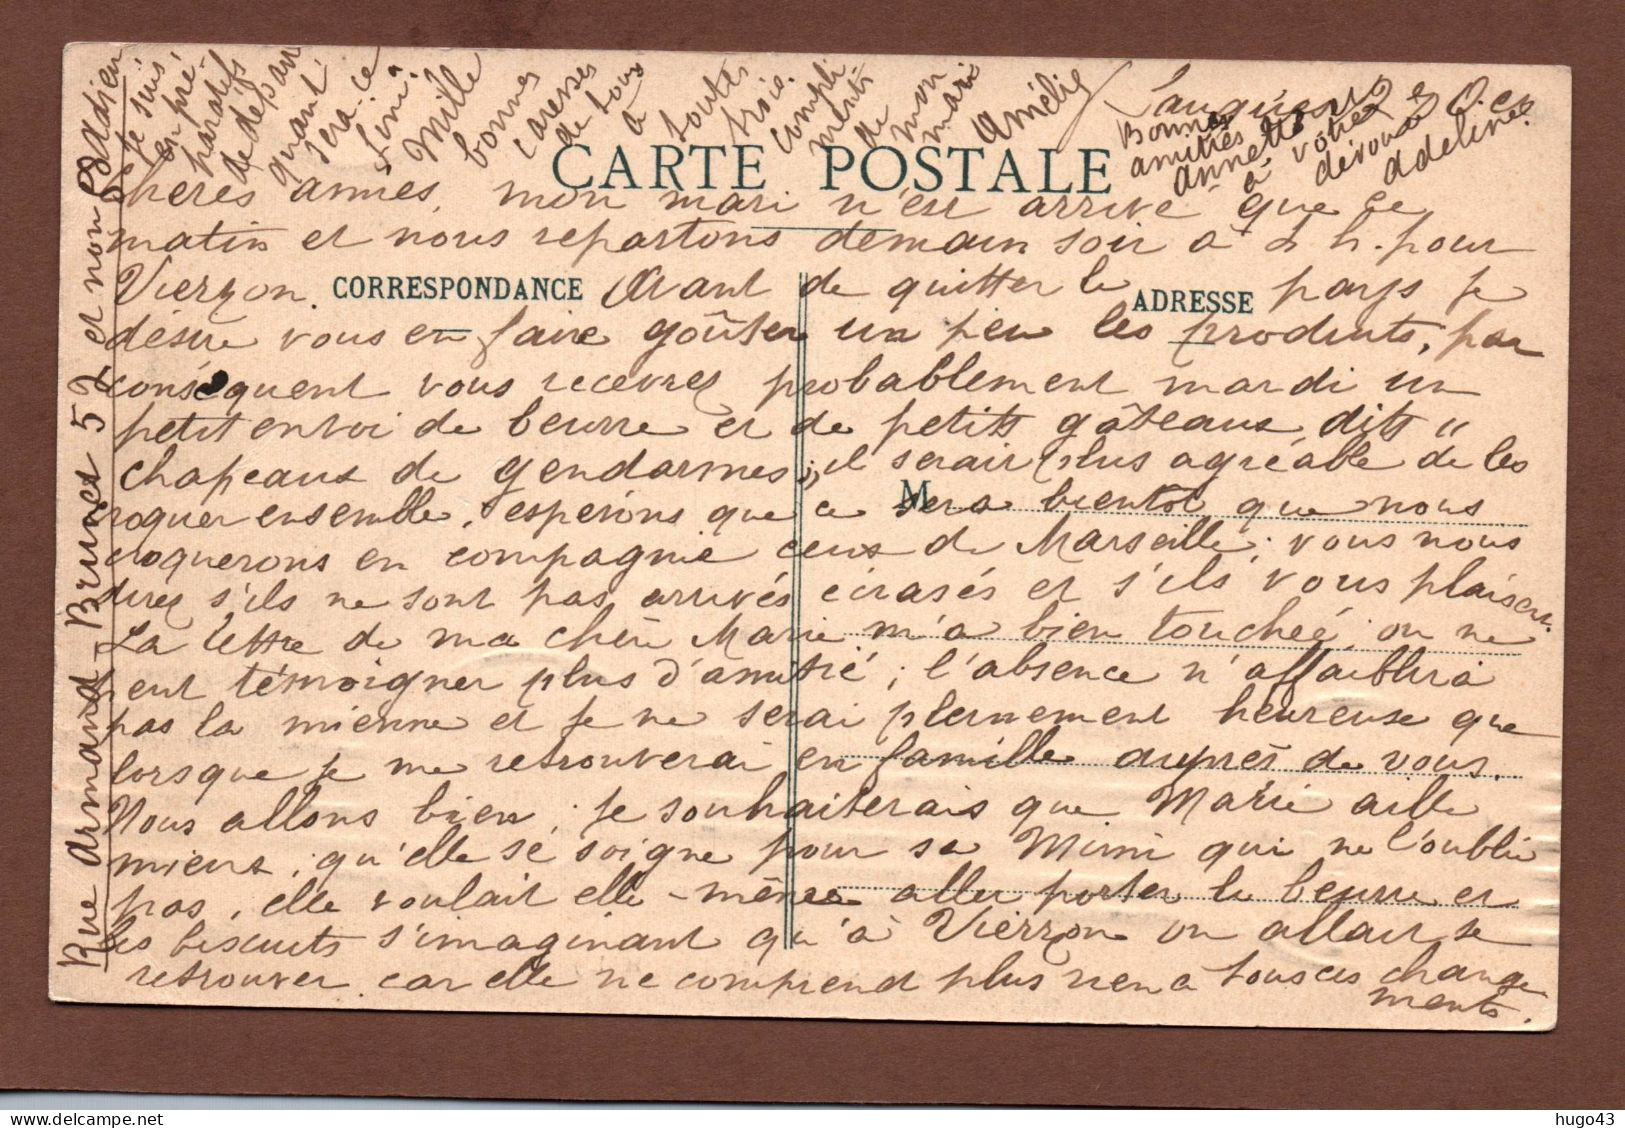 Langueux le 2 Oct
CARTE POSTALE
Chères amies, mon mari n'est arrivé que ce
matin et nous repartons demain soir à 2 h. pour
Vierzon. Avant de quitter le pays je
CORRESPONDANCE
ADRESSE
désire vous en faire goûter un peu les produits, par
conséquent vous recevrez probablement mardi un
petit envoi de beurre et de petits gâteaux dits "
chapeaux de gendarmes", il serait plus agréable de les
croquer ensemble. espérons que ce sera bientôt que nous
M
croquerons en compagnie ceux de Marseille; vous nous
direz s'ils ne sont pas arrivés écrasés et s'ils vous plaisent.
La lettre de ma chère Marie m'a bien touchée; on ne
peut témoigner plus d'amitié; l'absence n'affaiblira
pas la mienne et je ne serai pleinement heureuse que
lorsque je me retrouverai en famille auprès de vous.
Nous allons bien; je souhaiterais que Marie aille
mieux, qu'elle se soigne pour sa Mimi qui ne l'oublie
pas, elle voulait elle-même aller porter le beurre et
les biscuits s'imaginant qu'à Vierzon on allait se
retrouver car elle ne comprend plus rien à tous ces change
ments.
Je suis
en pré-
paratifs
de départ
quand
sera-ce
fini?
Mille
bonnes
caresses
de tous
à
toutes
trois.
compli
ments
de
mon
mari
Amélie
Bonnes
amitiés
Annette
à votre
dévouée
Adeline.
Rue Armand-Brunet 52 et non
hugo43